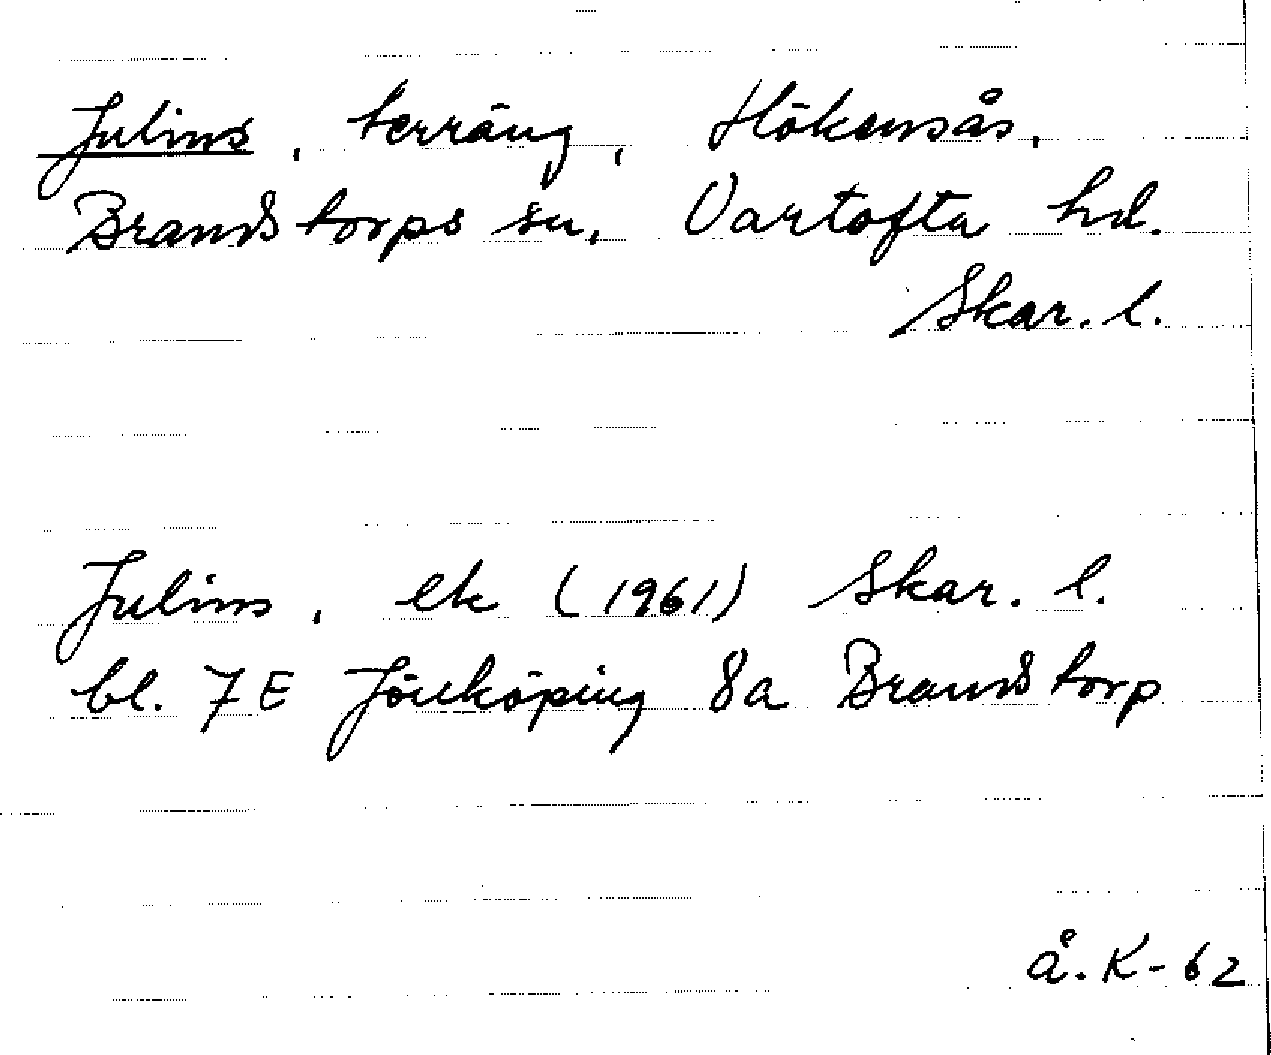 Julius, terräng, Hökensås,
Brandstorps sn, Vartofta hd.
Skar. l.
Julius, ek (1961) Skar. l.
bl. 7E Jönköping 8a Brandstorp
å. K-62